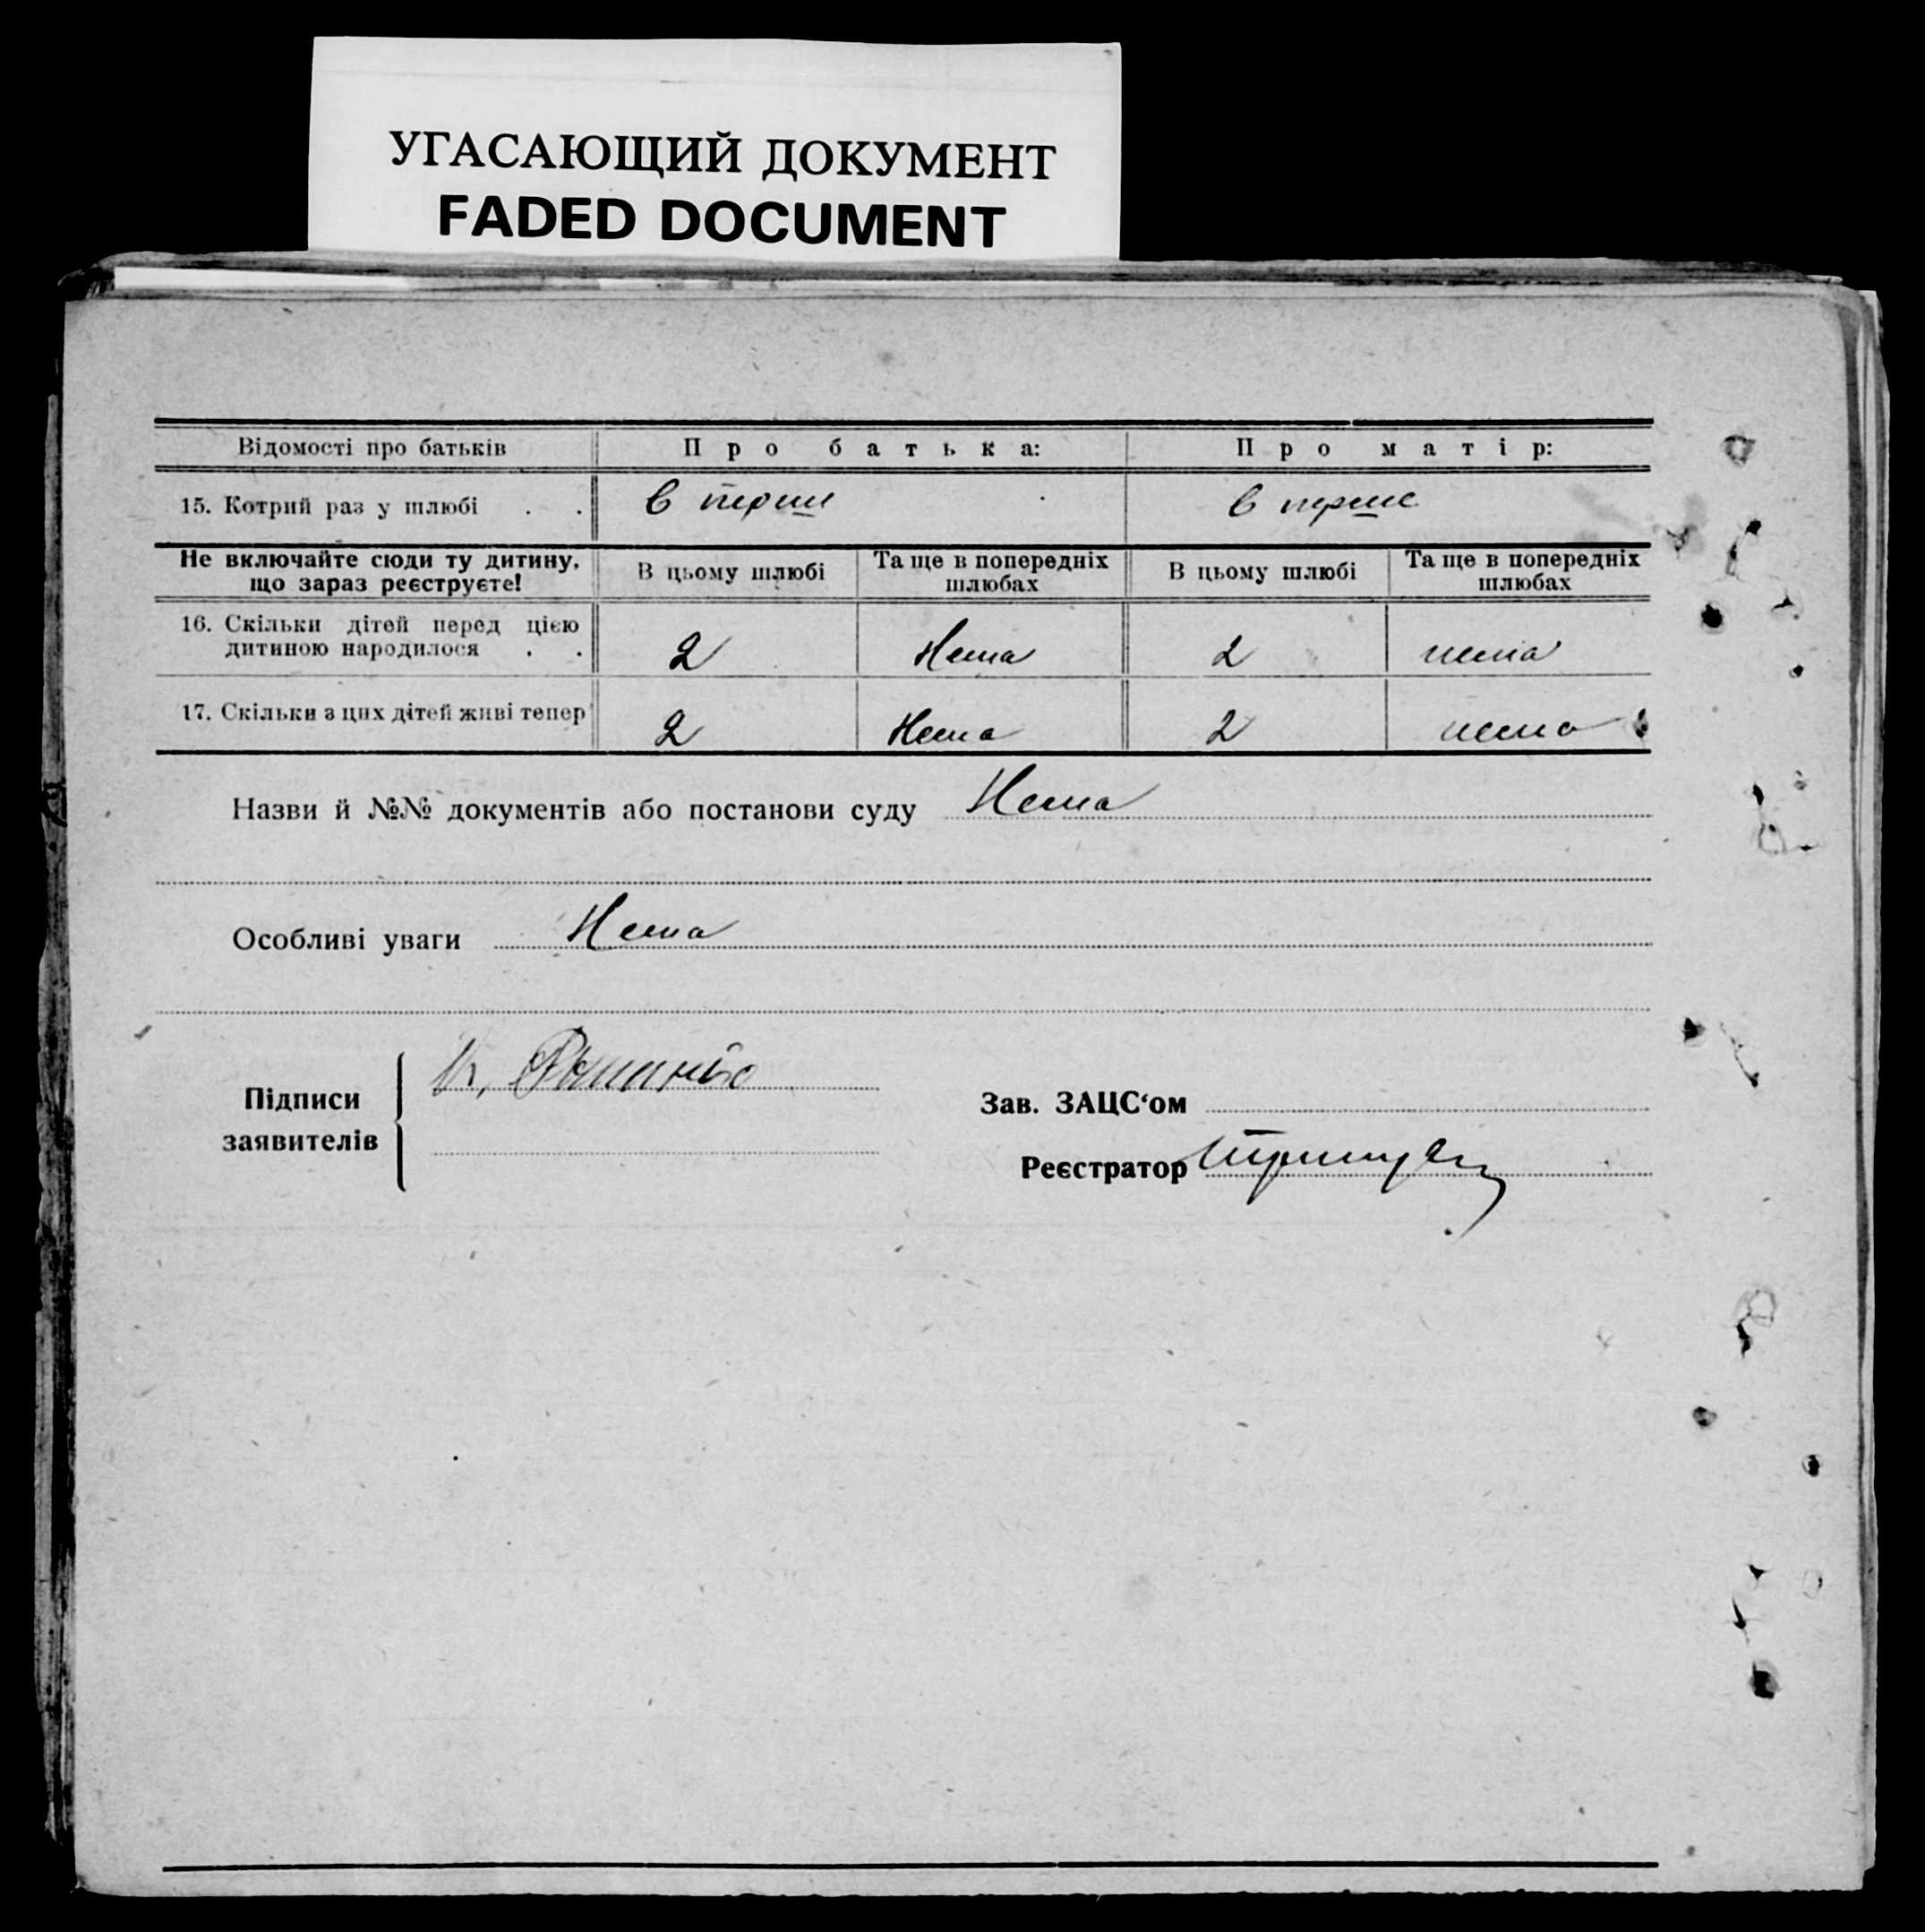 УГАСАЮЩИЙ ДОКУМЕНТ
FADED DOCUMENT
Відомості про батьків Про батька: Про матір:
15. Котрий раз у шлюбі . . В перши В перше
Не включайте сюди ту дитину,
що зараз реєструєте!
В цьому шлюбі
Та ще в попередніх
шлюбах
В цьому шлюбі
Та ще в попередніх
шлюбах
16. Скільки дітей перед цією
дитиною народилося . . 2 Нема 2 нема
17. Скільки з цих дітей живі тепер 2 Нема 2 нема
Назви й №№ документів або постанови суду Нема
Особливі уваги Нема
Підписи
заявителів
Зав. ЗАЦС‘ом
Реєстратор